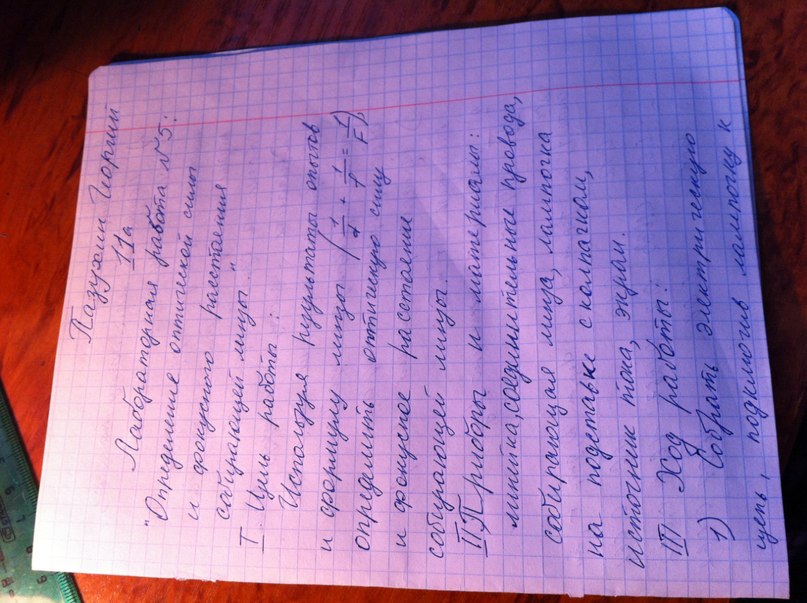 Пазухин Георгий
11а
Лабораторная работа №5:
"Определение оптической силы
и фокусного расстояния
собирающей линзы".
I. Цель работы:
Используя результаты опытов
и формулу линзы (1/d + 1/f = 1/F),
определить оптическую силу
и фокусное расстояние
собирающей линзы.
II. Приборы и материалы:
линейка, соединительные провода,
собирающая линза, лампочка
на подставке с колпачком,
источник тока, экран.
III Ход работы:
1) Собрать электрическую
цепь, подключив лампочку к